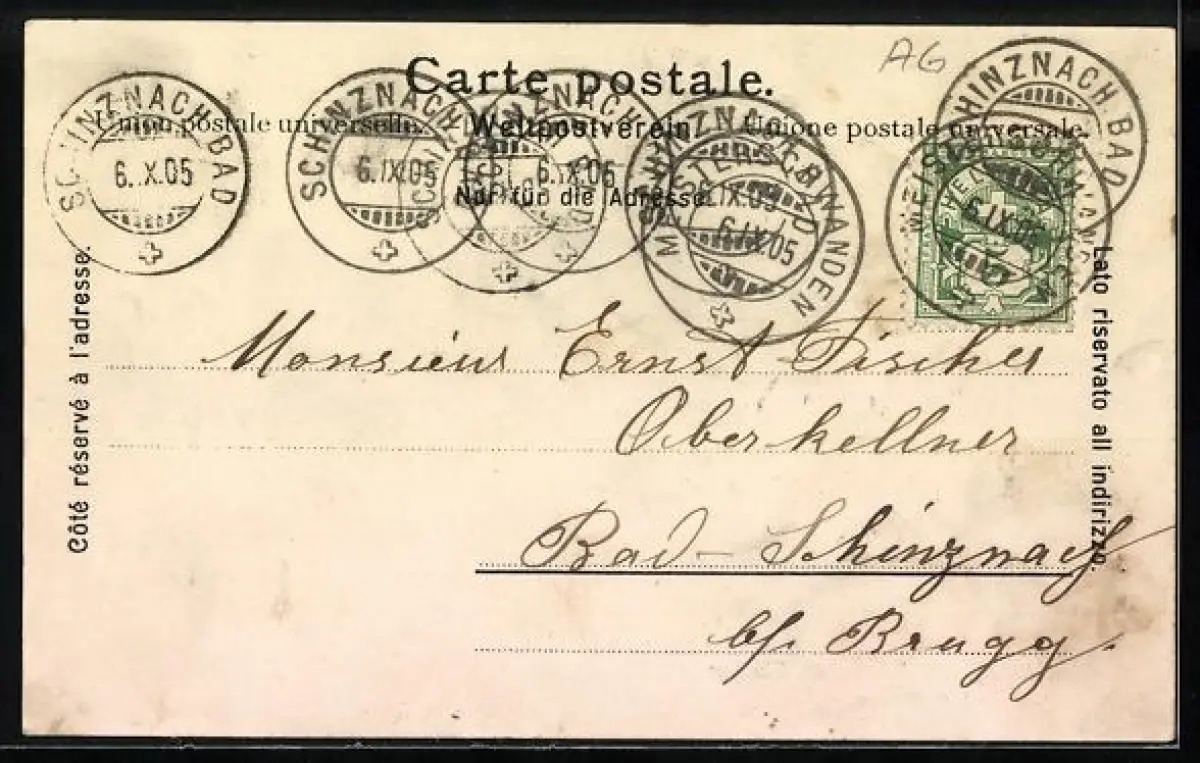 AG
Carte postale.
Union postale universelle. Weltpostverein. Unione postale universale.
Nur für die Adresse.
SCHINZNACH BAD
6.IX.05
SCHINZNACH
6.IX.05
SCHINZNACH BAD
6.IX.05
SCHINZNACH BAD
6.IX.05
MEISTERSCHWANDEN
6.IX.05
SCHINZNACH BAD
MEISTERSCHWANDEN
6.IX.05
Côté réservé à l'adresse.
Lato riservato all indirizzo.
Monsieur Ernst Fischer
Oberkellner
Bad-Schinznach
b/ Brugg.